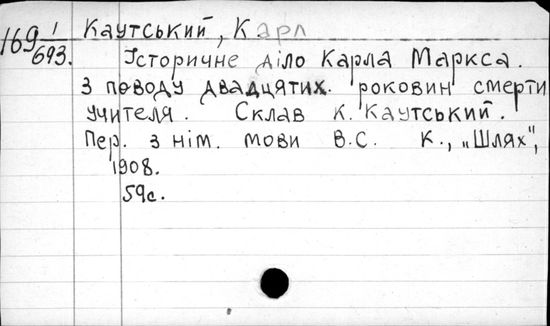 169 1/693.
Каутський, Карл
Історичне діло Карла Маркса.
З поводу двадцятих роковин смерти
учителя. Склав К. Каутський.
Пер. з нім. мови В.С. К., „Шлях",
1908.
59с.